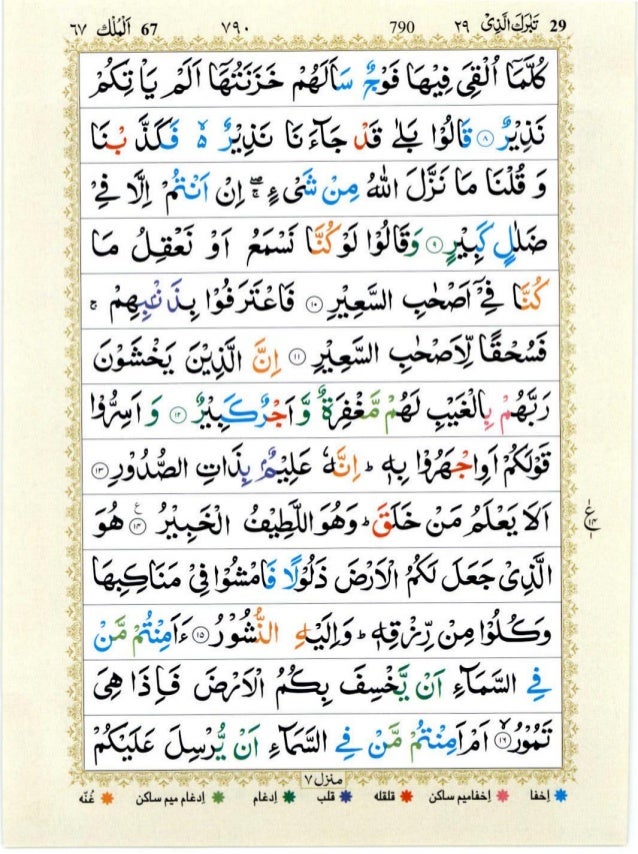 29 تَبٰرَكَ الَّذِىْ ٢٩ 790 ٧٩٠ 67 اَلْمُلْك ٦٧
كُلَّمَاۤ اُلْقِىَ فِيْهَا فَوْجٌ سَاَلَهُمْ خَزَنَتُهَاۤ اَلَمْ يَاْتِكُمْ
نَذِيْرٌ ۸ قَالُوْا بَلٰى قَدْ جَآءَنَا نَذِيْرٌ ۙ۬ فَكَذَّبْنَا
وَ قُلْنَا مَا نَزَّلَ اللّٰهُ مِنْ شَىْءٍ ۖۚ اِنْ اَنْتُمْ اِلَّا فِىْ
ضَلٰلٍ كَبِيْرٍ ۹ وَقَالُوْا لَوْ كُنَّا نَسْمَعُ اَوْ نَعْقِلُ مَا
كُنَّا فِىْۤ اَصْحٰبِ السَّعِيْرِ ۱۰ فَاعْتَرَفُوْا بِذَنْۢبِهِمْ ۚ
فَسُحْقًا لِّاَصْحٰبِ السَّعِيْرِ ۱۱ اِنَّ الَّذِيْنَ يَخْشَوْنَ
رَبَّهُمْ بِالْغَيْبِ لَهُمْ مَّغْفِرَةٌ وَّ اَجْرٌ كَبِيْرٌ ۱۲ وَ اَسِرُّوْا
قَوْلَكُمْ اَوِ اجْهَرُوْا بِهٖ ؕ اِنَّهٗ عَلِيْمٌۢ بِذَاتِ الصُّدُوْرِ ۱۳
اَلَا يَعْلَمُ مَنْ خَلَقَ ؕ وَهُوَ اللَّطِيْفُ الْخَبِيْرُ ۱۴ ع هُوَ
ع ۱۴ ۱
الَّذِىْ جَعَلَ لَكُمُ الْاَرْضَ ذَلُوْلًا فَامْشُوْا فِىْ مَنَاكِبِهَا
وَكُلُوْا مِنْ رِّزْقِهٖ ؕ وَاِلَيْهِ النُّشُوْرُ ۱۵ ءَاَمِنْتُمْ مَّنْ
فِى السَّمَآءِ اَنْ يَّخْسِفَ بِكُمُ الْاَرْضَ فَاِذَا هِىَ
تَمُوْرُ ۙ ۱۶ اَمْ اَمِنْتُمْ مَّنْ فِى السَّمَآءِ اَنْ يُّرْسِلَ عَلَيْكُمْ
منزل ٧
اِخفا اِخفامیم ساکن قلقله قلب اِدغام اِدغام میم ساکن غُنّه